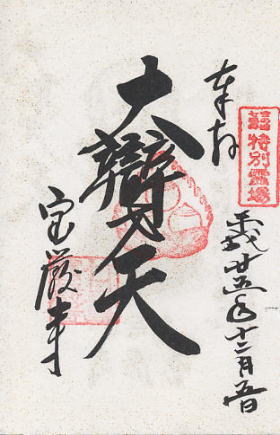 特別霊場
奉拝
平成廿五年十二月五日
大辯才天
宝厳寺